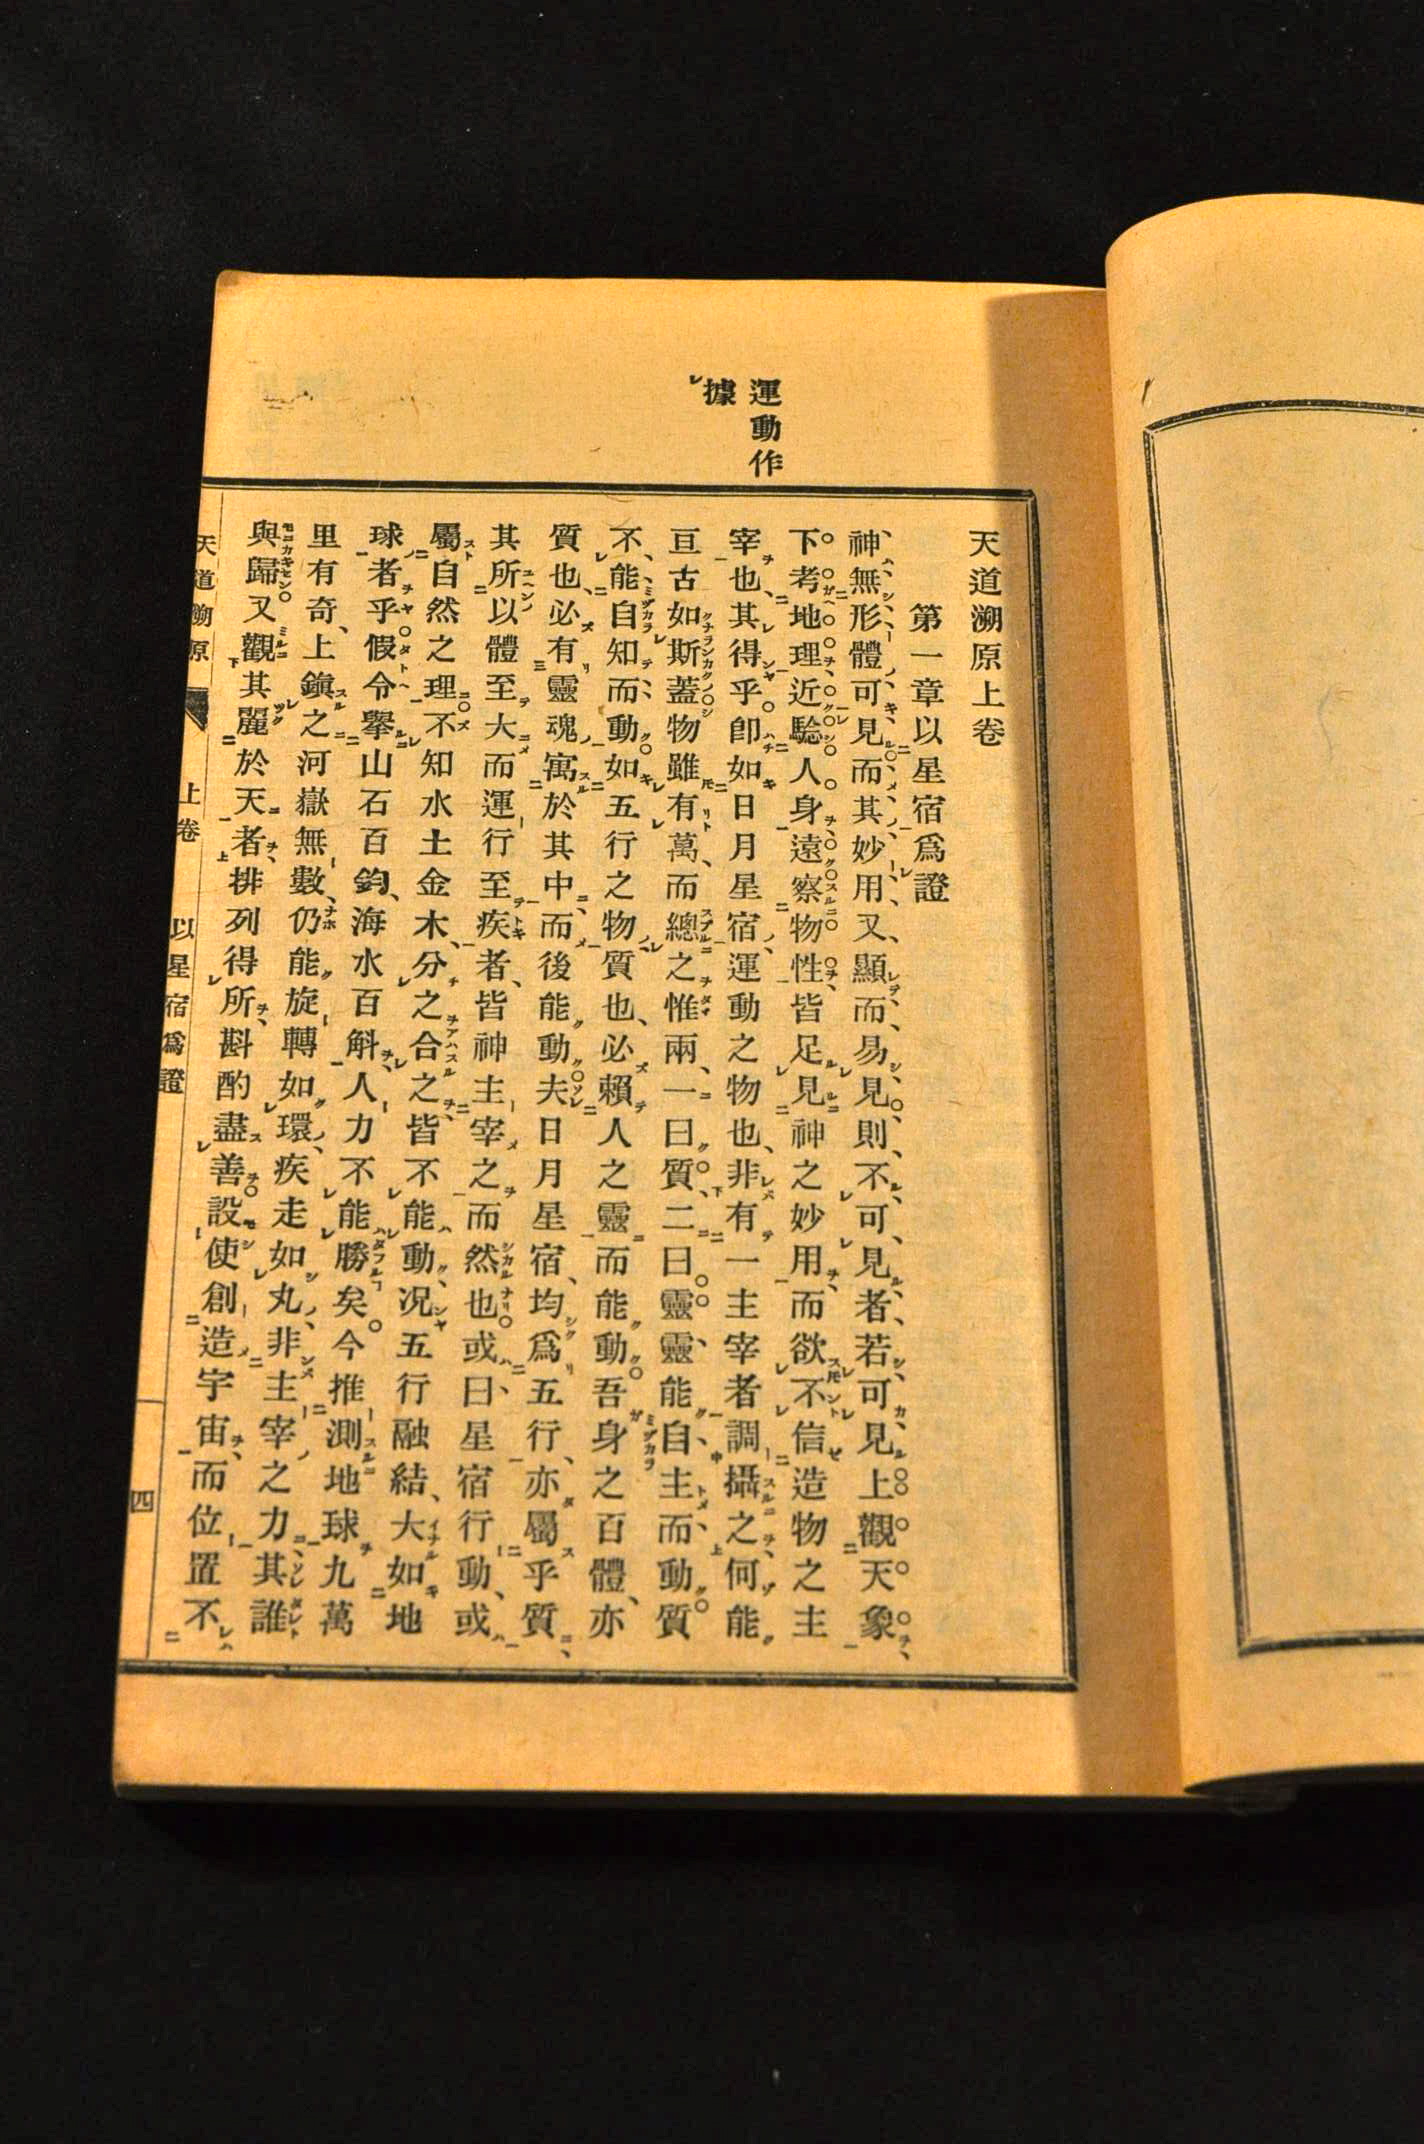 運動作
據
天道溯原上卷
第一章以星宿爲證
神無形體可見而其妙用又顯而易見則不可見者若可見上觀天象
下考地理近驗人身遠察物性皆足見神之妙用而欲不信造物之主
宰也其得乎卽如日月星宿運動之物也非有一主宰者調攝之何能
亘古如斯蓋物雖有萬而總之惟兩一曰質二曰靈靈能自主而動質
不能自知而動如五行之物質也必賴人之靈而能動吾身之百體亦
質也必有靈魂寓於其中而後能動夫日月星宿均爲五行亦屬乎質
其所以體至大而運行至疾者皆神主宰之而然也或曰星宿行動或
屬自然之理不知水土金木分之合之皆不能動况五行融結大如地
球者乎假令擧山石百鈞海水百斛人力不能勝矣今推測地球九萬
里有奇上鎭之河嶽無數仍能旋轉如環疾走如丸非主宰之力其誰
與歸又觀其麗於天者排列得所斟酌盡善設使創造宇宙而位置不
天道溯原 上卷 以星宿爲證 四